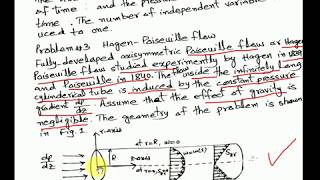 of time : and the pressure
time . The number of independent variable
uced to one.
Problem #3 Hagen-Poiseuille flow
Fully-developed axisymmetric Poiseuille flow or Hagen
Poiseuille flow studied experimentally by Hagen in 1839
and Poiseuille in 1840. The flow inside the infinitely long
cylinderical tube is induced by the constant pressure
gradient dp/dz. Assume that the effect of gravity is
negligible. The geometry of the problem is shown
in Fig. 1
r-axis
at r=R, u=0
dp
dz
R
z-axis